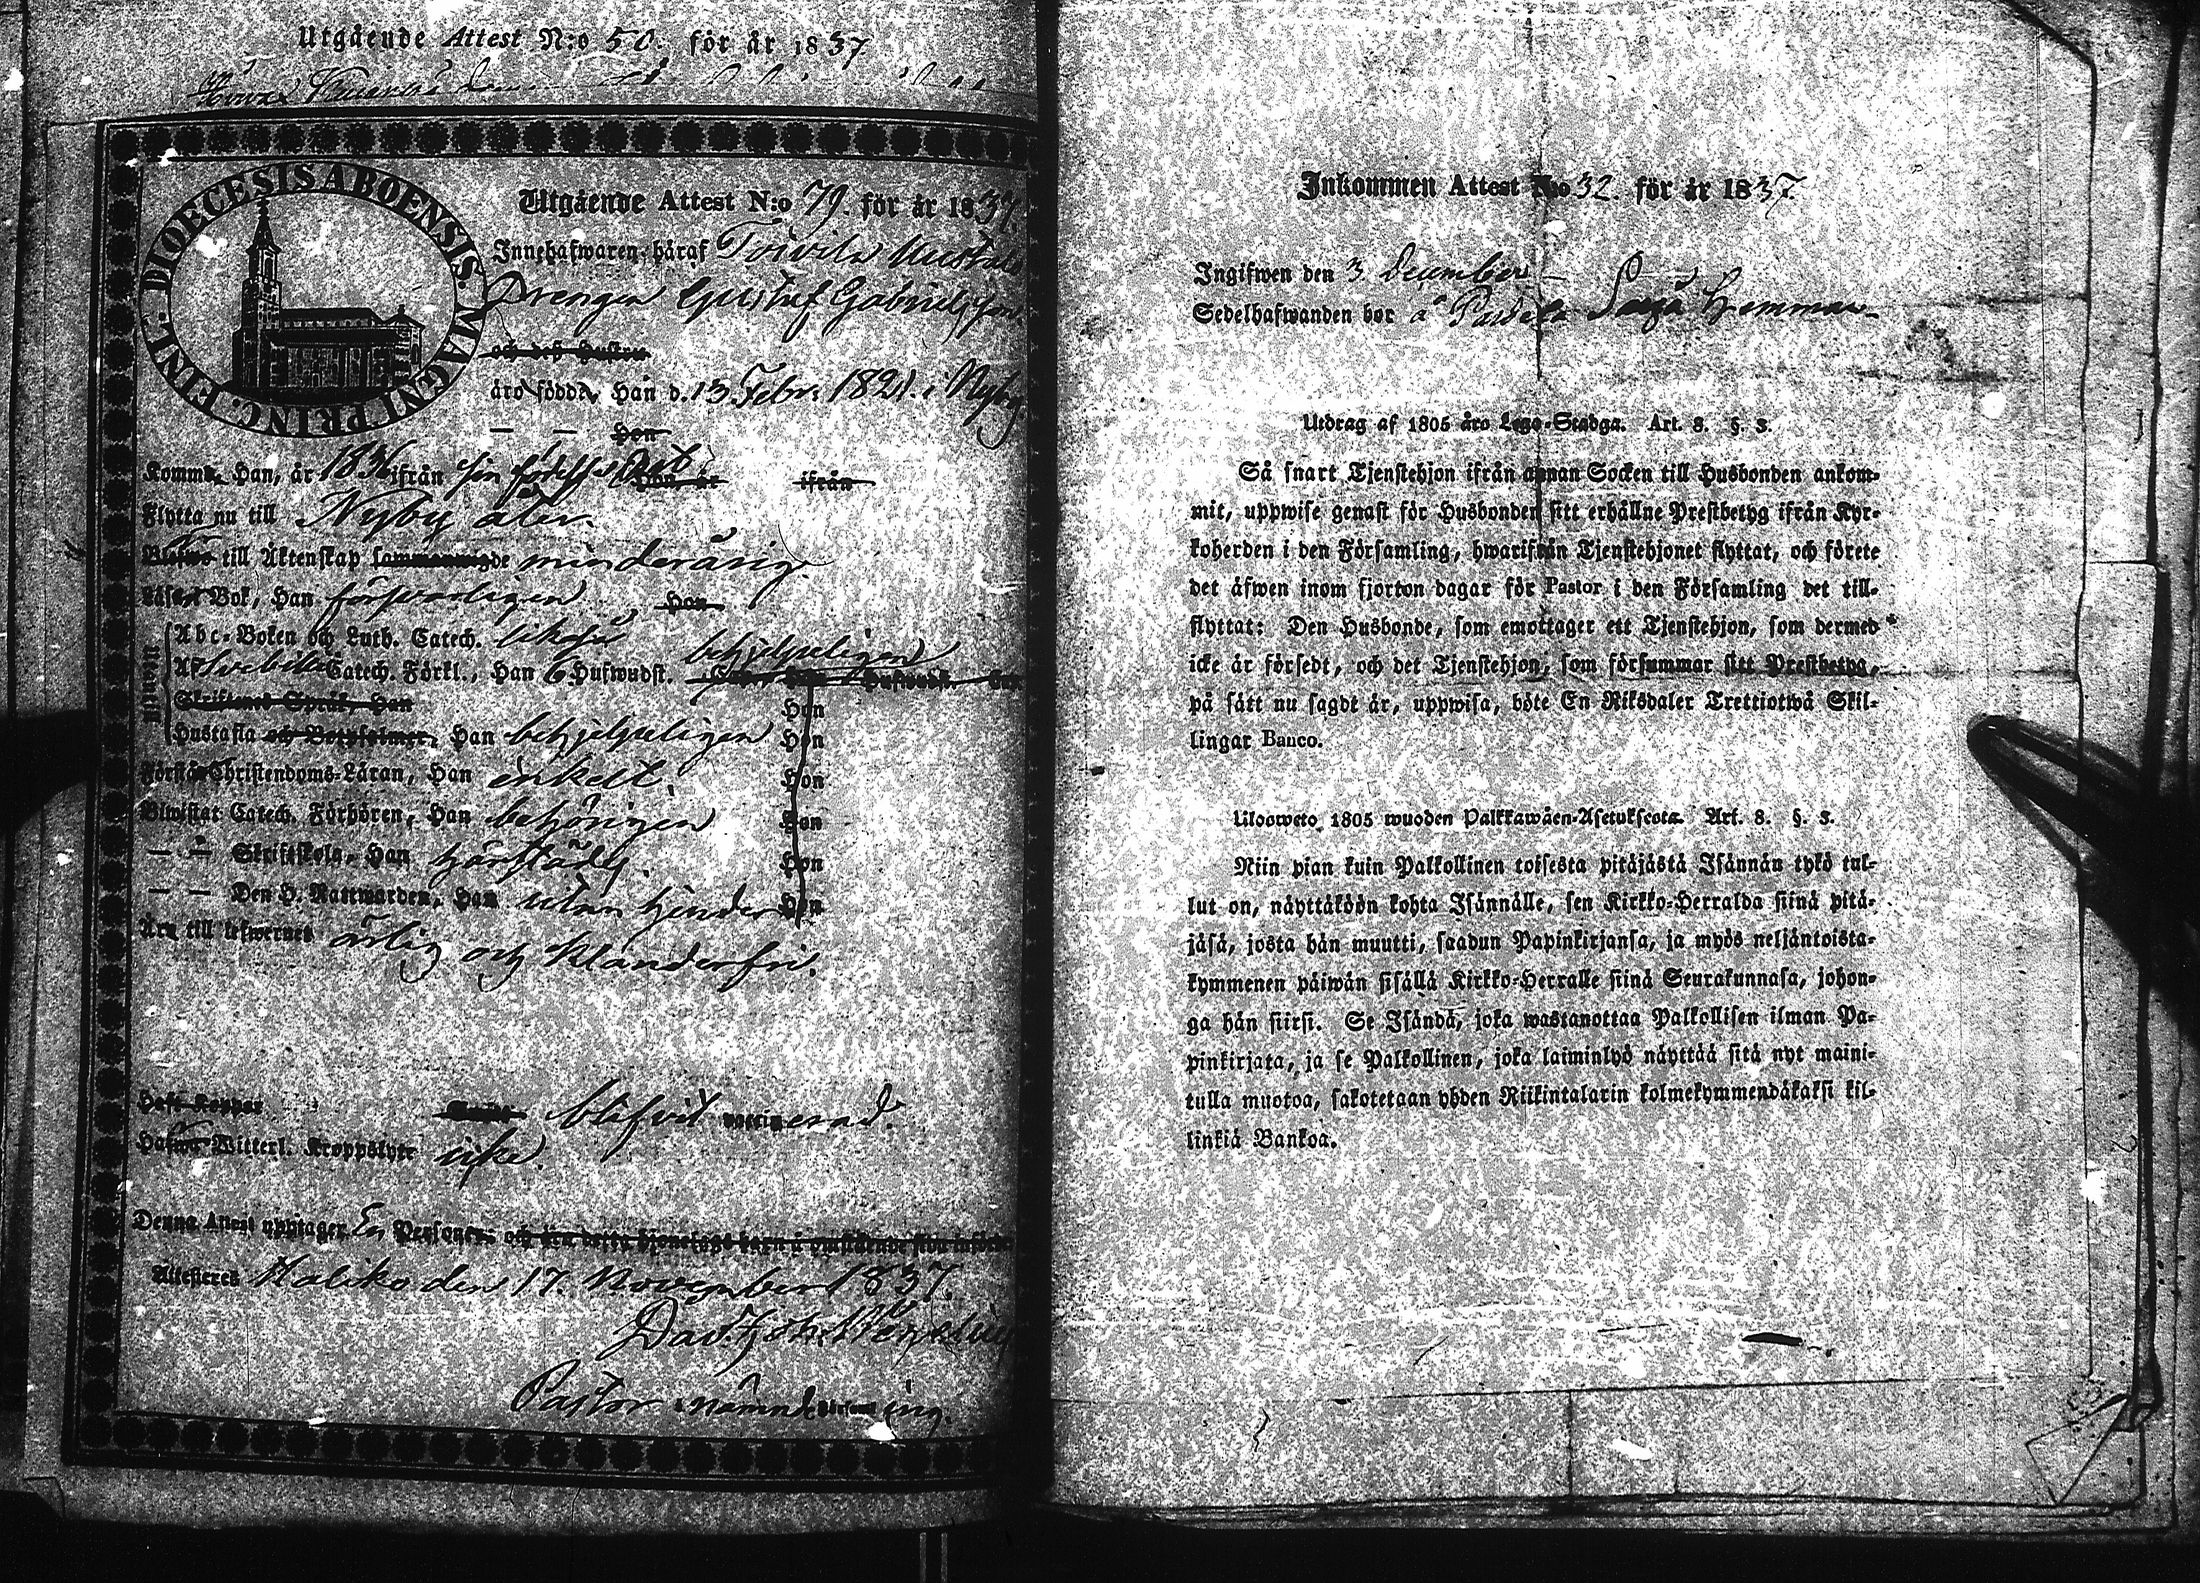 Utgående Attest N:o 50. för år 1837
DIOECESIS ABOENSIS. MAGNI PRINC. FINL.
Utgående Attest N:o 79. för år 1837.
Innehafwaren häraf Toivila
Drengen Gustaf Gabrielsson
och deß Hustru
äro födde, Han d. 13 Febr. 1821. i Nyby
— — Hon
Komme, Han, år 1836 ifrån sin födelse Hon, år ifrån
Flytta nu till Nyby åter.
till Äktenskap minderårig.
Bok, Han försvarligen Hon
Utantill
Abc-Boken och Luth. Catech. likaså
Af Svebilii Catech. Förkl., Han 6 Hufwudst. behjelpeligen
Skriftenes Språk, Han Hon
Hustafla och Botpsalmer, Han behjelpeligen Hon
Förstå Christendoms-Läran, Han enkelt. Hon
Biwistat Catech. Förhören, Han behörigen Hon
— — Skriftskola, Han härstädes. Hon
— — Den H. Nattwarden, Han utan hinder Hon
Äro till lefwernet ärlig och klanderfri.
Haft Koppor blifvit vaccinerad.
Witterl. Kroppslyte icke.
Denna Attest upptager En Personer
Attesteres Haliko den 17. November 1837.
Pastor i nämnde Församling.
Inkommen Attest N:o 32. för år 1837.
Ingifwen den 3 december —
Sedelhafwanden bor å hemman
Utdrag af 1805 års Lego-Stadga. Art. 8. §. 3.
Så snart Tjenstehjon ifrån annan Socken till Husbonden ankom-
mit, uppwise genast för Husbonden sitt erhållne Prestbetyg ifrån Kyr-
koherden i den Församling, hwarifrån Tjenstehjonet flyttat, och förete
det äfwen inom fjorton dagar för Pastor i den Församling det till-
flyttat: Den Husbonde, som emottager ett Tjenstehjon, som dermed
icke är försedt, och det Tjenstehjon, som försummar sitt Prestbetyg,
på sätt nu sagdt är, uppwisa, böte En Riksdaler Trettiotwå Skil-
lingar Banco.
Uloosweto 1805 wuoden Palkkawäen-Asetuksesta. Art. 8. §. 3.
Niin pian kuin Palkollinen toisesta pitäjästä Isännän tykö tul-
lut on, näyttäköön kohta Isännälle, sen Kirkko-Herralda siinä pitä-
jäsä, josta hän muutti, saadun Papinkirjansa, ja myös neljäntoista-
kymmenen päiwän sisällä Kirkko-Herralle siinä Seurakunnasa, johon-
ga hän siirsi. Se Isändä, joka wastanottaa Palkollisen ilman Pa-
pinkirjata, ja se Palkollinen, joka laiminlyö näyttää sitä nyt maini-
tulla muotoa, sakotetaan yhden Riikintalarin kolmekymmendäkaksi kil-
linkiä Bankoa.